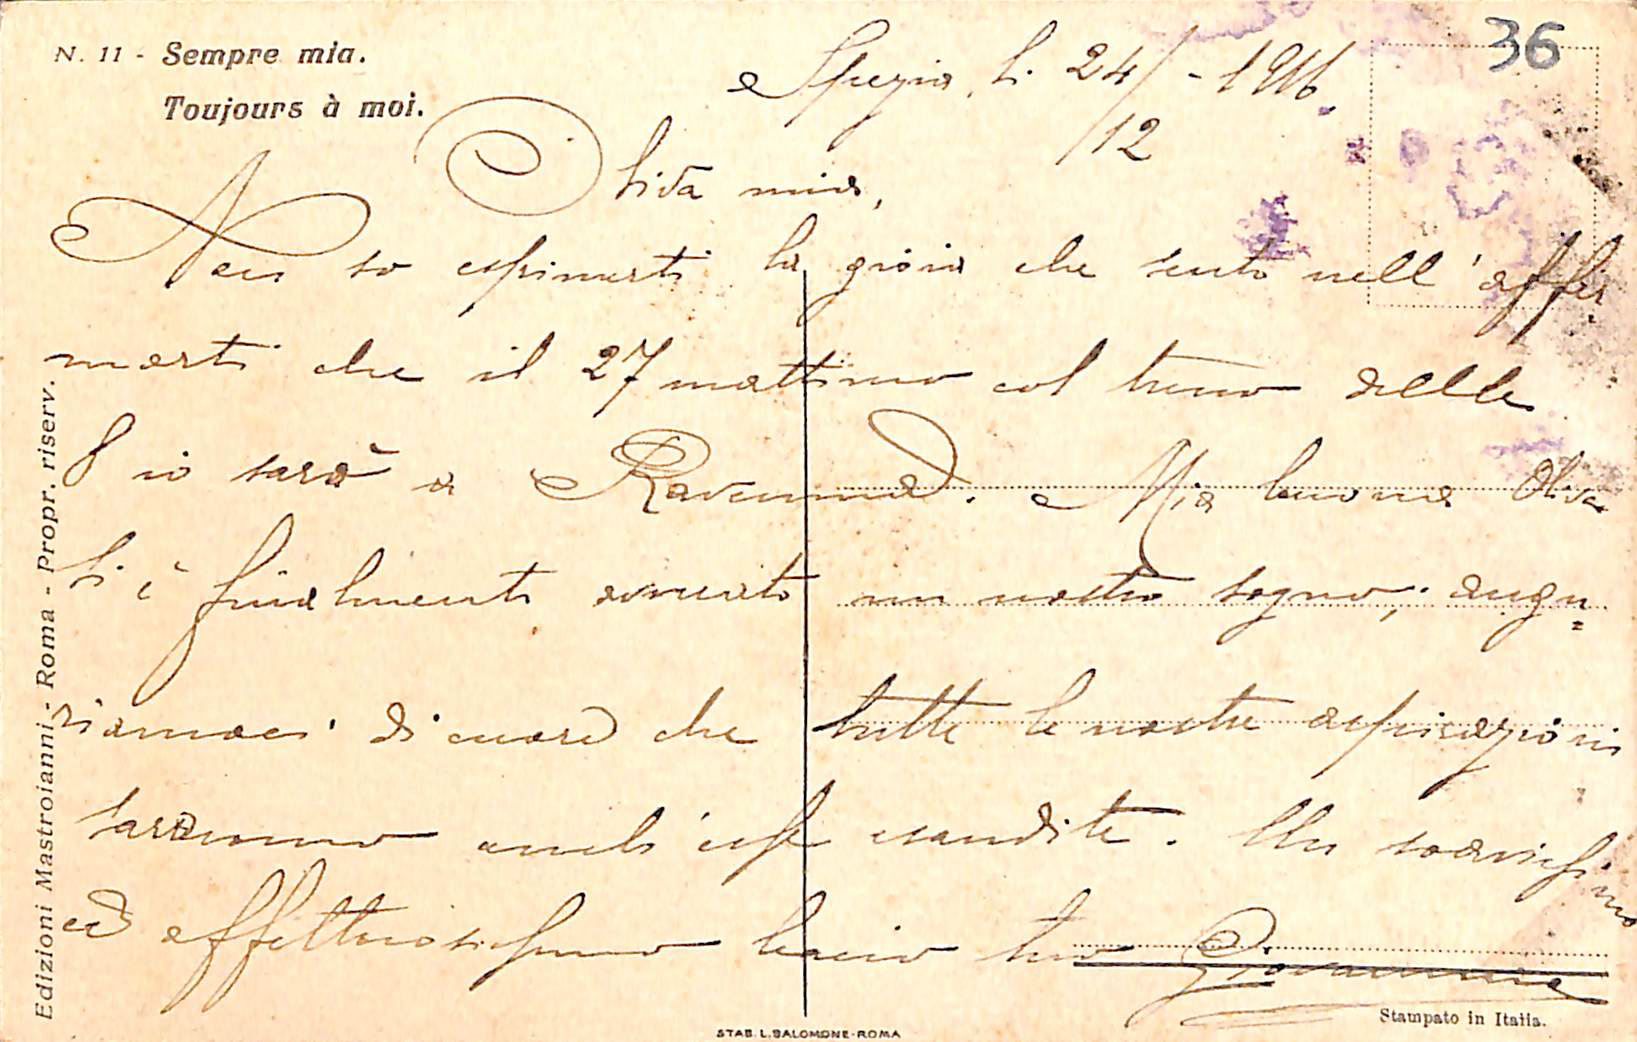 36
N. 11 - Sempre mia.
Toujours à moi.
Spezia, li. 24/12 - 1916.
Oliva mia,
Non so esprimerti la gioia che sento nell'affer
marti che il 27 mattino col treno delle
8 io sarò a Ravenna. Mia buona Oliva
si è finalmente avverato un nostro sogno; augu=
riamoci di cuore che tutte le nostre aspirazioni
saranno anch'esse esaudite. Un soavissimo
ed affettuosissimo bacio tuo Giovanni
Edizioni Mastroianni - Roma - Propr. riserv.
STAB. L. SALOMONE-ROMA
Stampato in Italia.